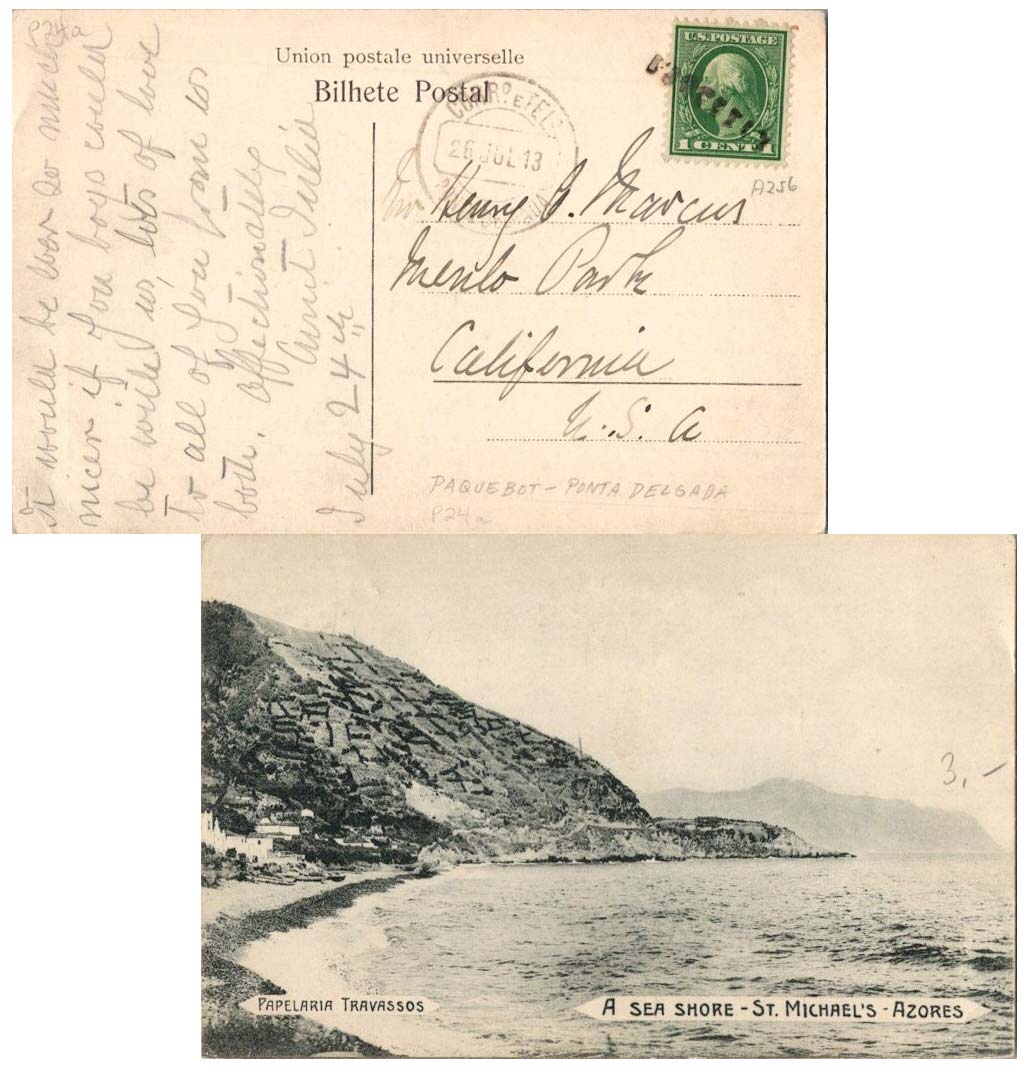 Union postale universelle
Bilhete Postal
U.S. POSTAGE
1 CENT 1
26 JUL 13
A256
P24a
It would be ever so much
nicer if you boys could
be with us, lots of love
to all of you from us
both. affectionately
Aunt Julia
July 24th
Mr Henry C. Marcus
Menlo Park
California
U. S. A
PAQUEBOT - PONTA DELGADA
P24a
3,-
PAPELARIA TRAVASSOS
A SEA SHORE - ST. MICHAEL'S - AZORES